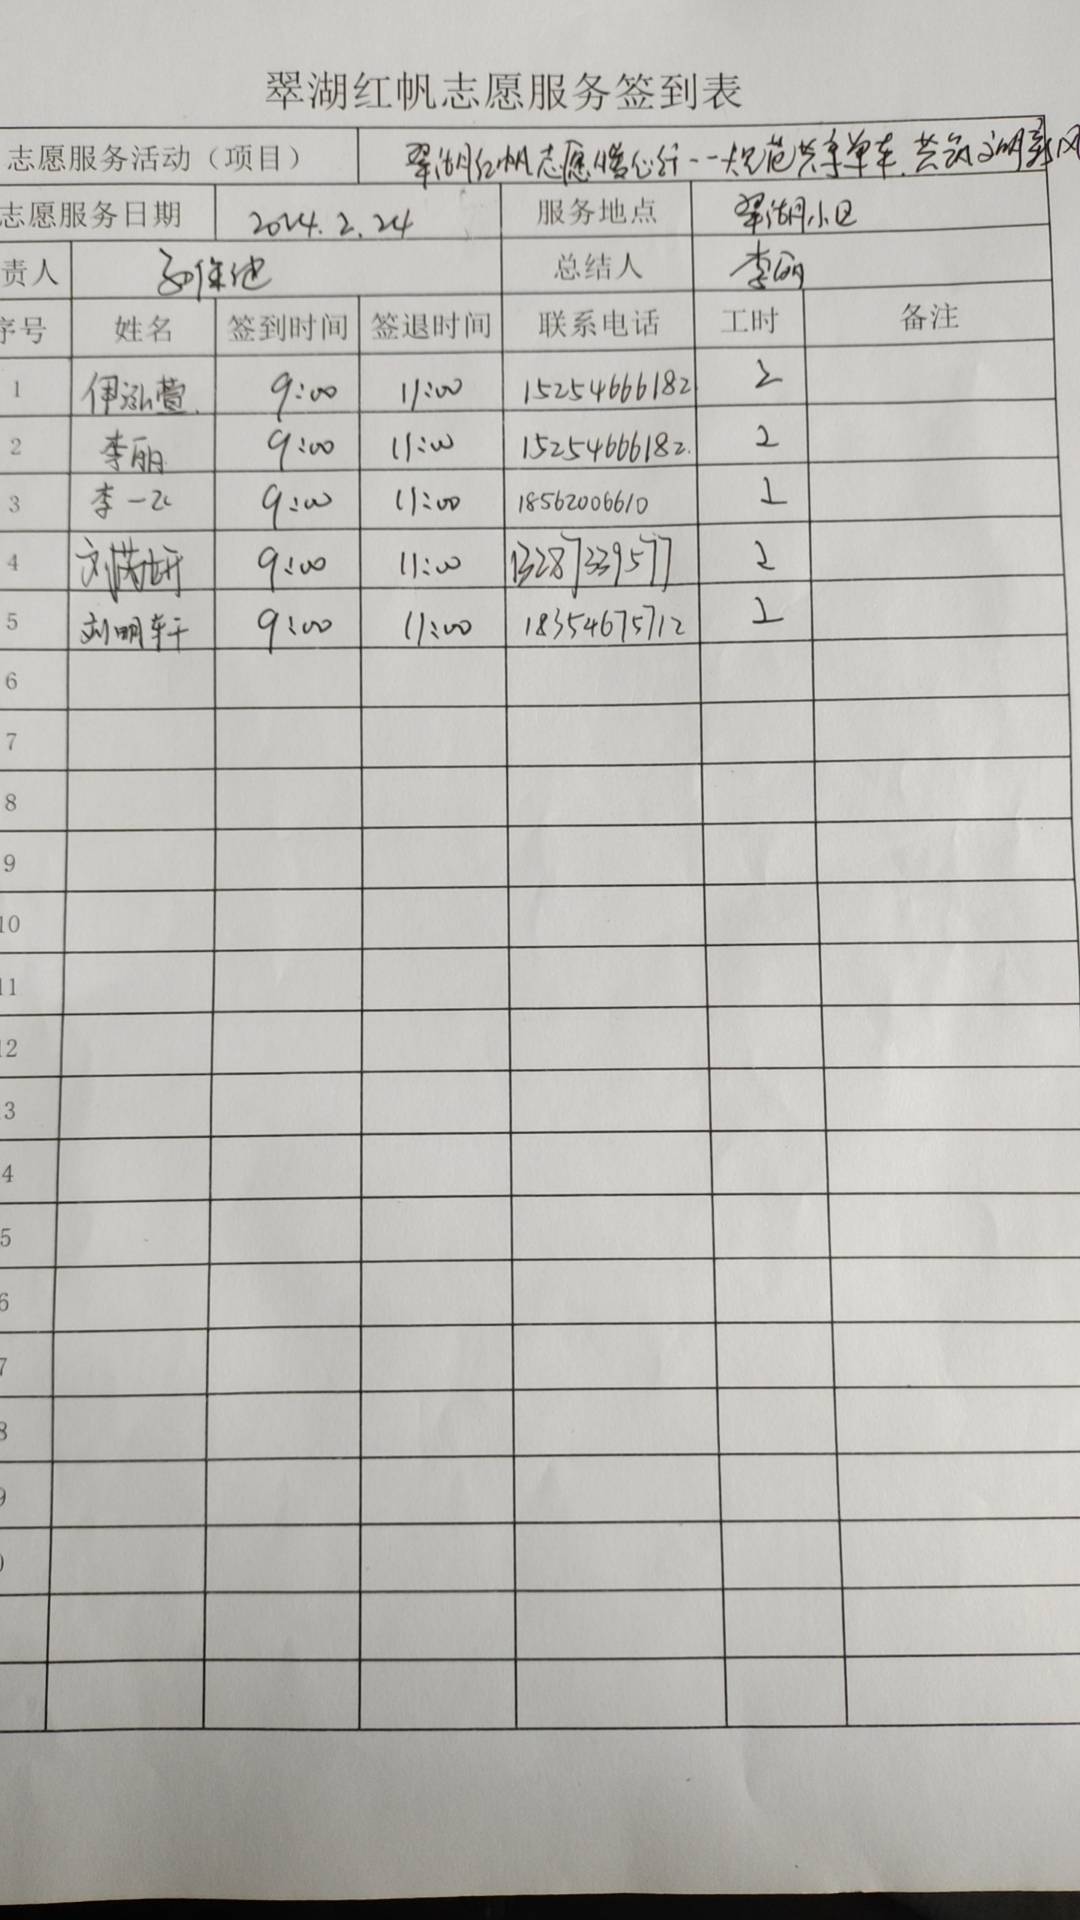 翠湖红帆志愿服务签到表
志愿服务活动（项目） 翠湖红帆志愿 行--规范共享单车，共筑文明新风
志愿服务日期 2024.2.24 服务地点 翠湖小区
责人 总结人 李丽
序号 姓名 签到时间 签退时间 联系电话 工时 备注
1 伊泓萱 9:00 11:00 15254666182 2
2 李丽 9:00 11:00 15254666182 2
3 李一 9:00 11:00 18562006610 2
4 刘 妍 9:00 11:00 13287339577 2
5 刘明轩 9:00 11:00 18354675712 2
6
7
8
9
10
11
12
3
4
5
6
7
8
9
0